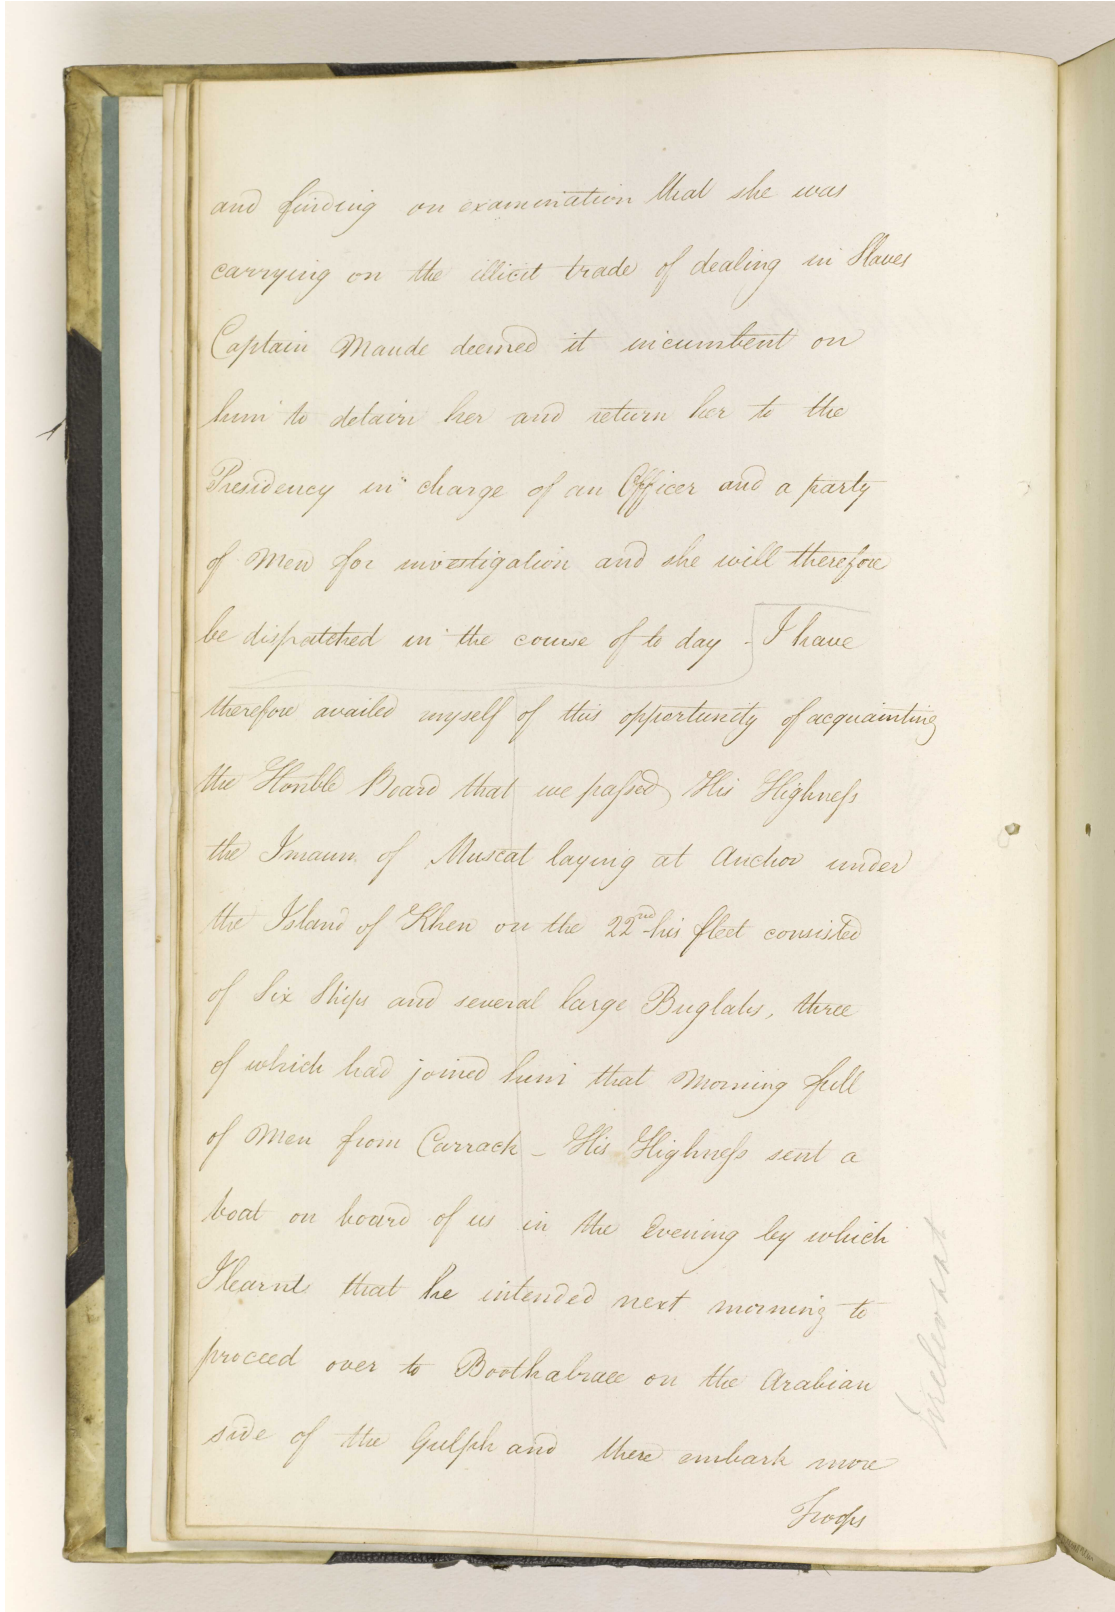 and finding on examination that she was
carrying on the illicit trade of dealing in Slaves
Captain Maude deemed it incumbent on
him to detain her and return her to the
Presidency in charge of an Officer and a party
of Men for investigation and she will therefore
be dispatched in the course of to day - I have
therefore availed myself of this opportunity of acquainting
the Honble Board that we passed His Highness
the Imaum of Muscat laying at Anchor under
the Island of Khen on the 22nd his fleet consisted
of Six Ships and several large Buglahs, three
of which had joined him that Morning full
of Men from Carrack - His Highness sent a
boat on board of us in the Evening by which
I learnt that he intended next morning to
proceed over to Boothabraee on the Arabian
side of the Gulph and there embark more
Troops
Irrelevant